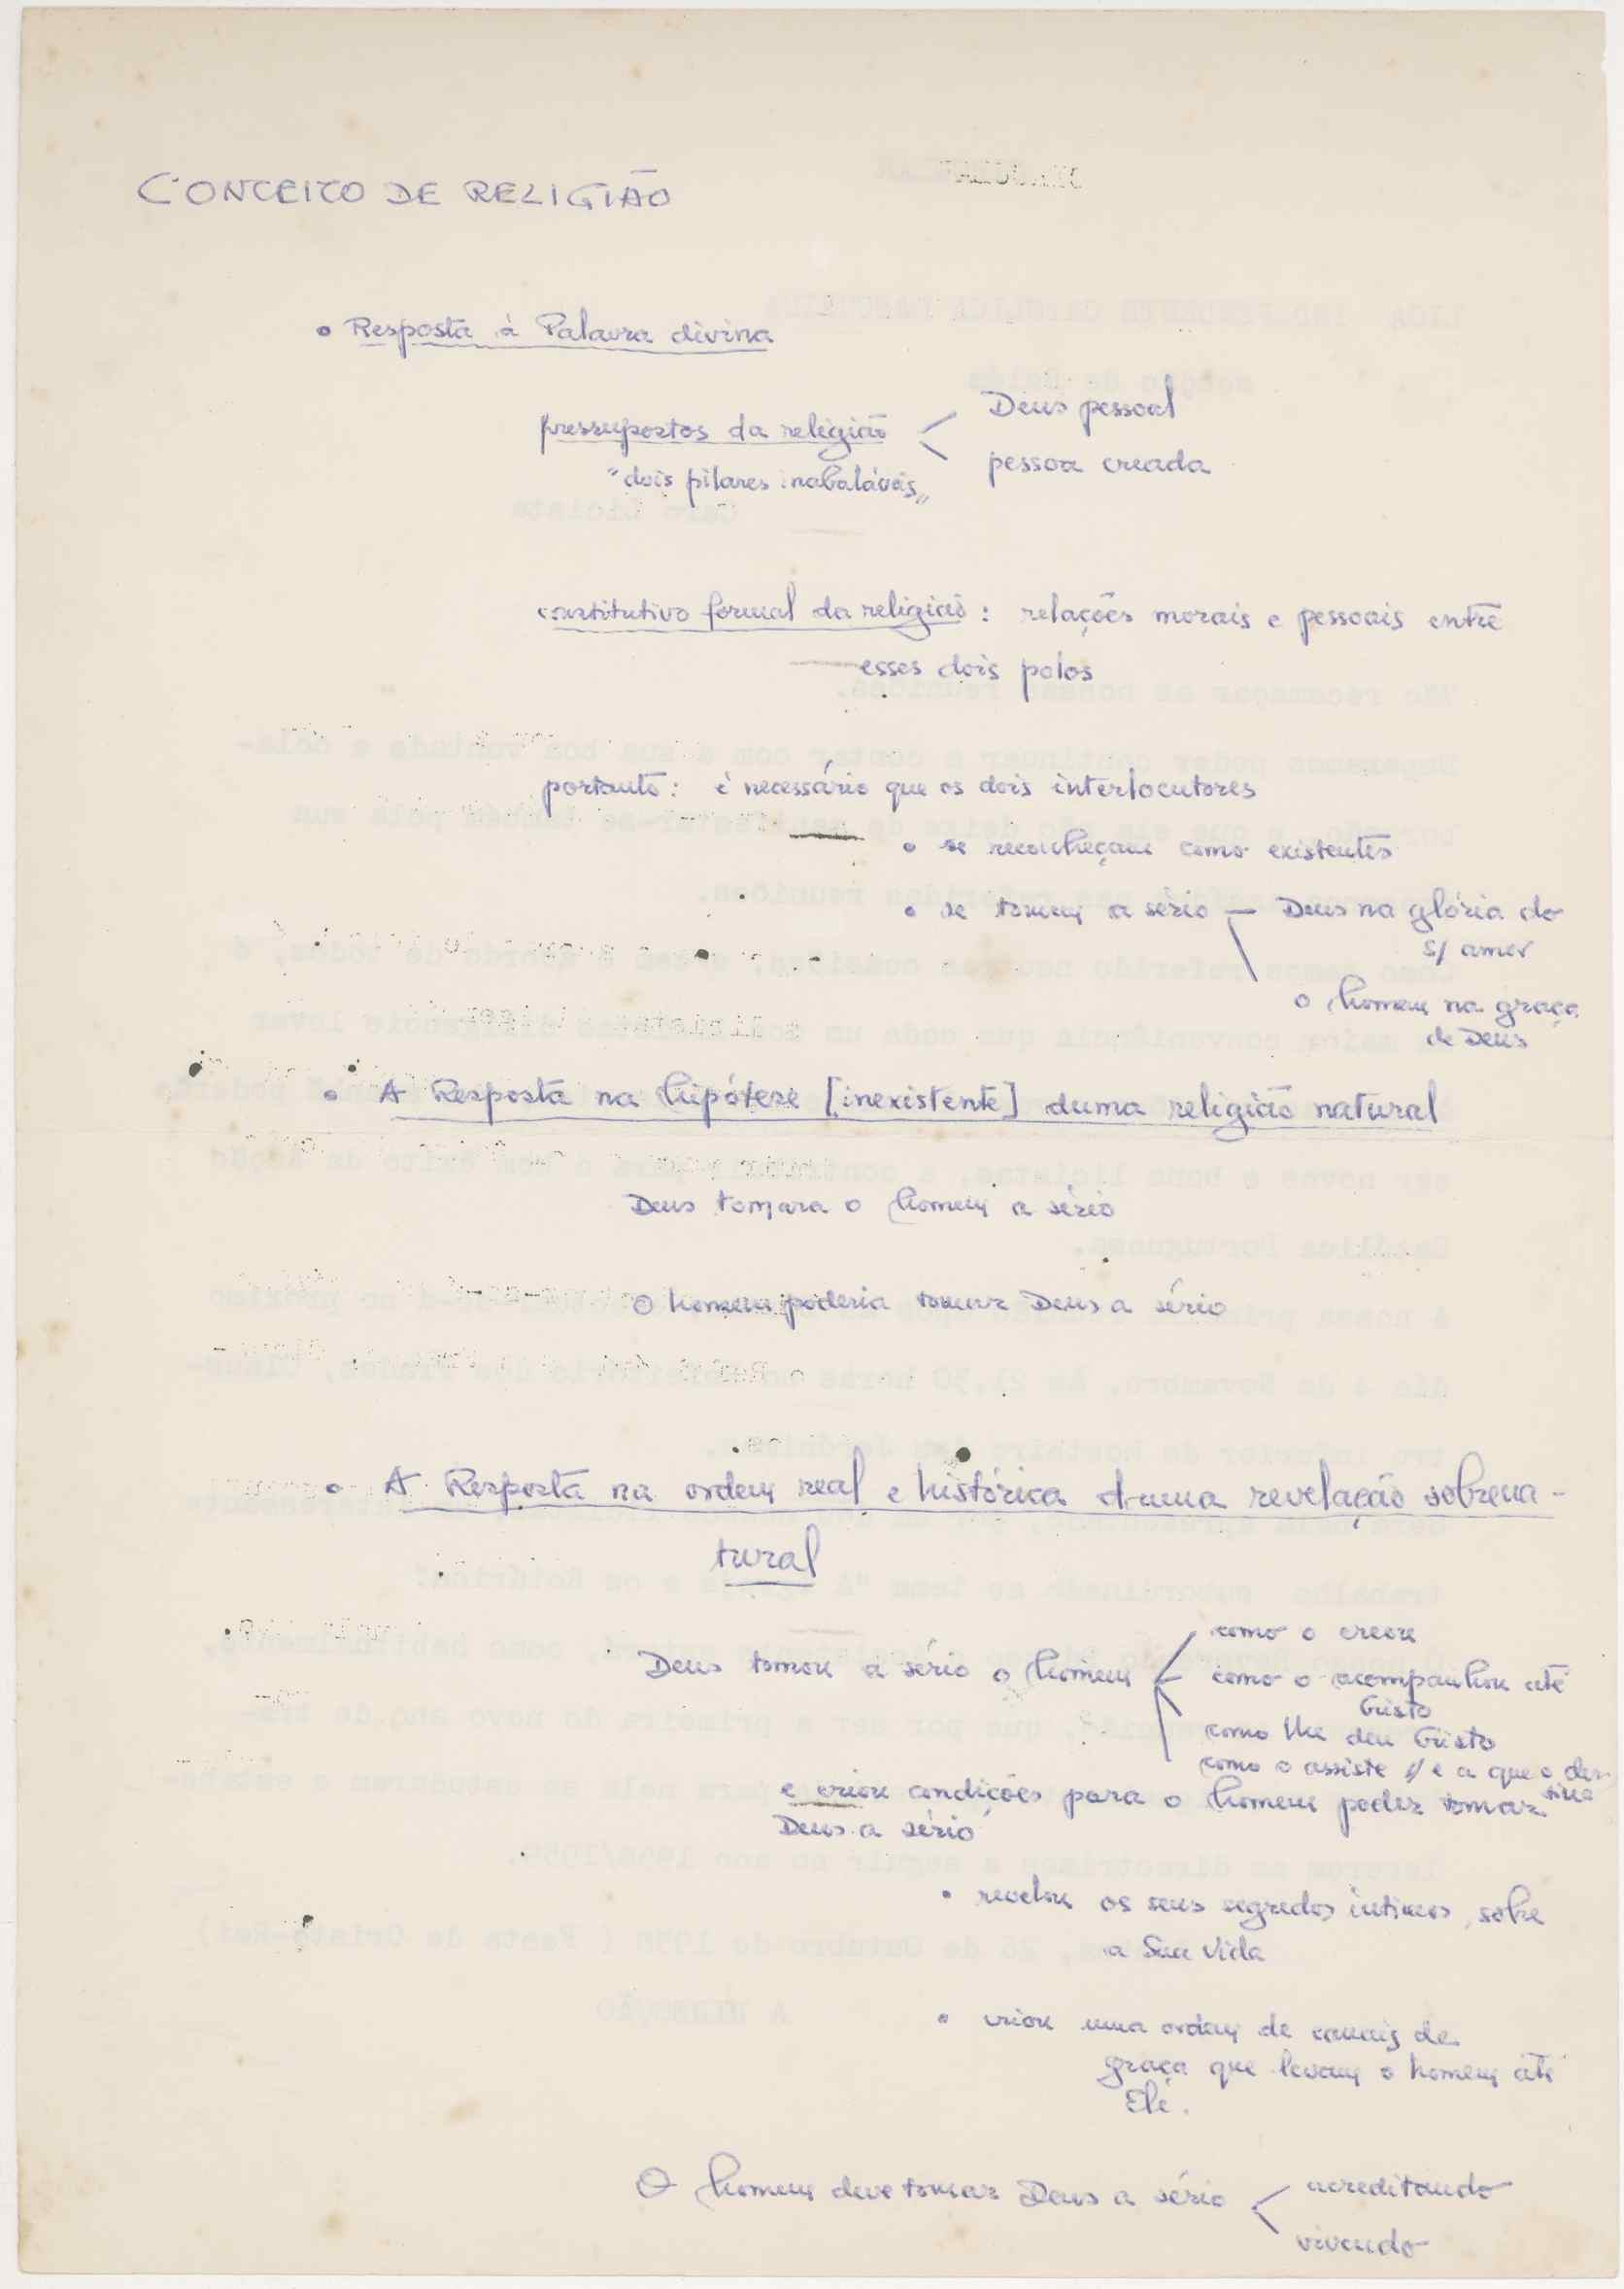 CONCEITO DE RELIGIÃO
• Resposta à Palavra divina
pressupostos da religião
Deus pessoal
pessoa creada
"dois pilares inabaláveis"
constitutivo formal da religião: relações morais e pessoais entre
esses dois polos
portanto: é necessário que os dois interlocutores
• se reconheçam como existentes
• se tomem a sério — Deus na glória do
s/ amor
o homem na graça
de Deus
• A Resposta na hipótese [inexistente] duma religião natural
Deus tomara o homem a sério
O homem poderia tomar Deus a sério
• A Resposta na ordem real e histórica duma revelação sobrena-
tural
Deus tomou a sério o homem
como o creou
como o acompanhou até
Cristo
como lhe deu Cristo
como o assiste e a que o des-
tina
e criou condições para o homem poder tomar
Deus a sério
• revelou os seus segredos íntimos, sobre
a Sua Vida
• criou uma ordem de canais de
graça que levam o homem até
Ele.
O homem deve tomar Deus a sério
acreditando
vivendo